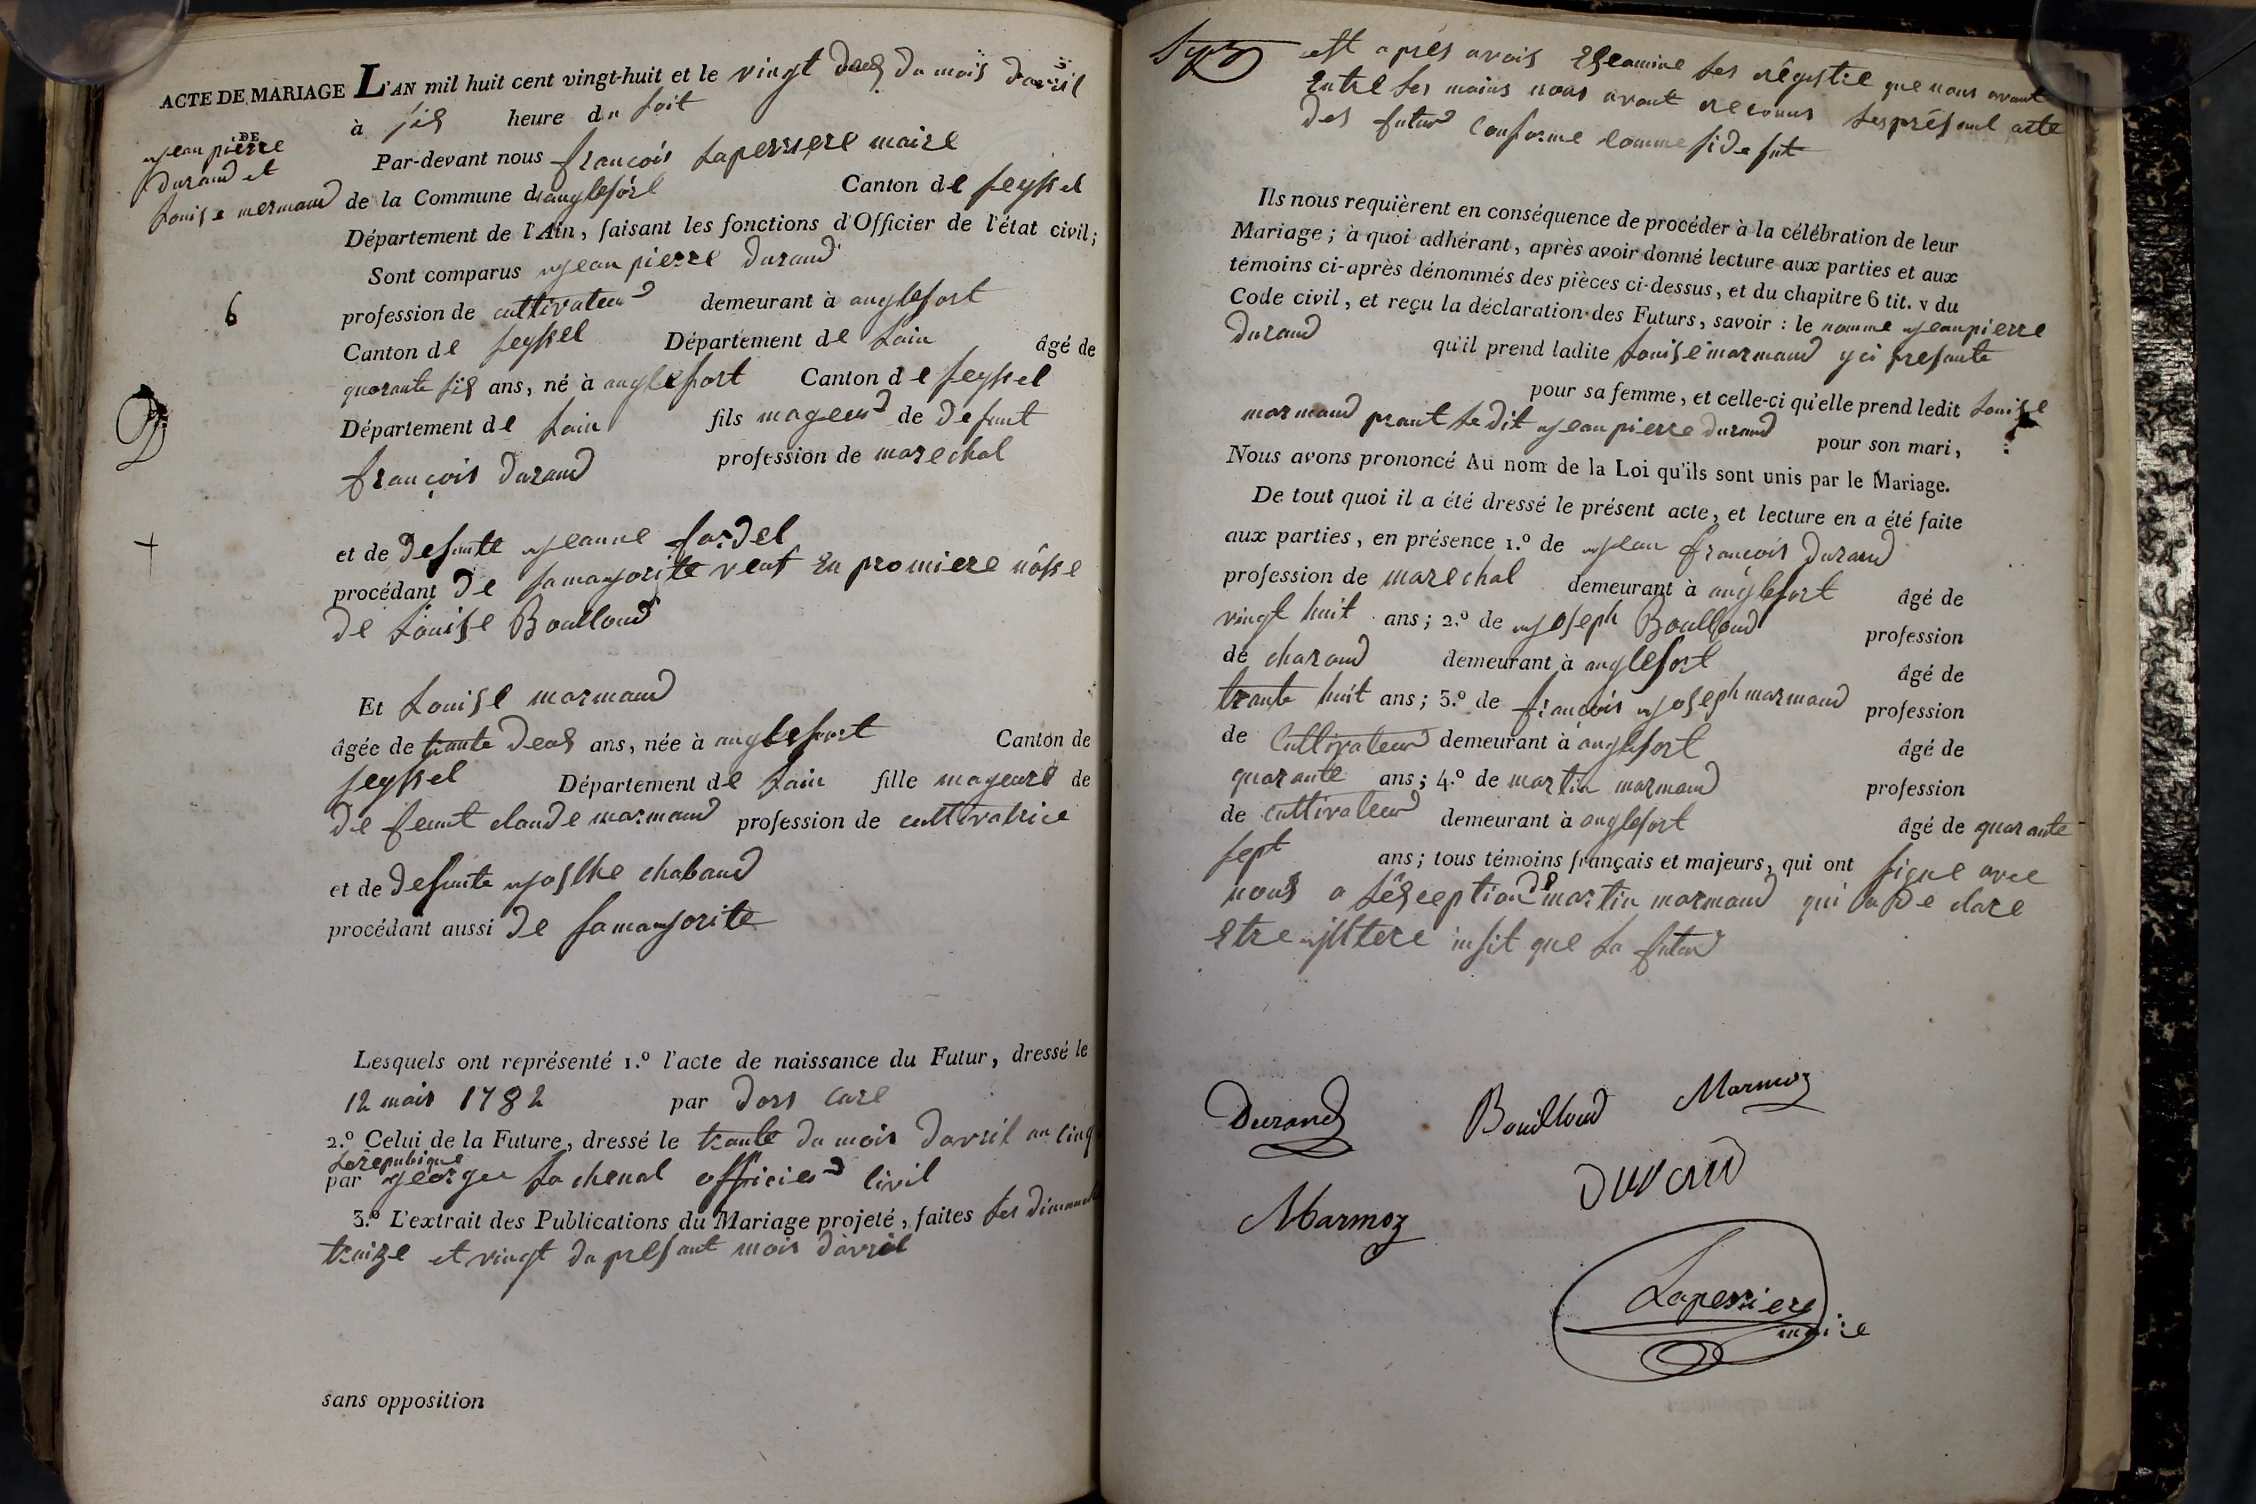 ACTE DE MARIAGE L'AN mil huit cent vingt-huit et le vingt deus du mois davril
à sis heure du soit
DE
jean pierre
durand et
Louise mermand
Par-devant nous françois Laperriere maire
de la Commune danglefort Canton de seyssel
Département de l'Ain, faisant les fonctions d'Officier de l'état civil;
Sont comparus jean pierre durand
profession de cultivateur demeurant à anglefort
6
Canton de seyssel Département de Lain âgé de
quarante sis ans, né à anglefort Canton de seyssel
Département de Lain fils mageur de defunt
françois durand profession de marechal
et de defunte jeanne fardel
procédant de sa majorite veuf en promiere nosse
de Louise Boulloud
Et Louise marmand
âgée de trante deus ans, née à anglefort Canton de
seyssel Département de Lain fille mageure de
de feunt claude marmand profession de cultivatrice
et de defunte josthe chaband
procédant aussi de sa majorite
Lesquels ont représenté 1.º l'acte de naissance du Futur, dressé le
12 mais 1782 par dors cure
2.º Celui de la Future, dressé le trante du mois davril an cinq
Larepubique
par george Lachenal officier civil
3.º L'extrait des Publications du Mariage projeté, faites Les dimanche
traize et vingt du presant mois davril
sans opposition
est après avois Eseamine Les régistre que nous avont
Entre Les mains nous avont reconus Lesprésant acte
des futur conforme comme side sut
Ils nous requièrent en conséquence de procéder à la célébration de leur
Mariage; à quoi adhérant, après avoir donné lecture aux parties et aux
témoins ci-après dénommés des pièces ci-dessus, et du chapitre 6 tit. v du
Code civil, et reçu la déclaration des Futurs, savoir: le nomme jeanpierre
durand qu'il prend ladite Louise marmand yci presante
pour sa femme, et celle-ci qu'elle prend ledit Louise
marmand prant Le dit jean pierre durand pour son mari,
Nous avons prononcé Au nom de la Loi qu'ils sont unis par le Mariage.
De tout quoi il a été dressé le présent acte, et lecture en a été faite
aux parties, en présence 1.º de jean françois durand
profession de marechal demeurant à anglefort âgé de
vingt huit ans; 2.º de joseph Boulloud profession
de charand demeurant à anglefort âgé de
trante huit ans; 3.º de françois joseph marmand profession
de Cultivateur demeurant à anglefort âgé de
quarante ans; 4.º de martin marmand profession
de cultivateur demeurant à anglefort âgé de quarante
sept ans; tous témoins français et majeurs, qui ont signe avec
nous a Lésception de martin marmand qui a de clare
Etre jlltere insit que La futur
Durand Bouilloud Marmoz
Marmoz durand
Laperriere
maire